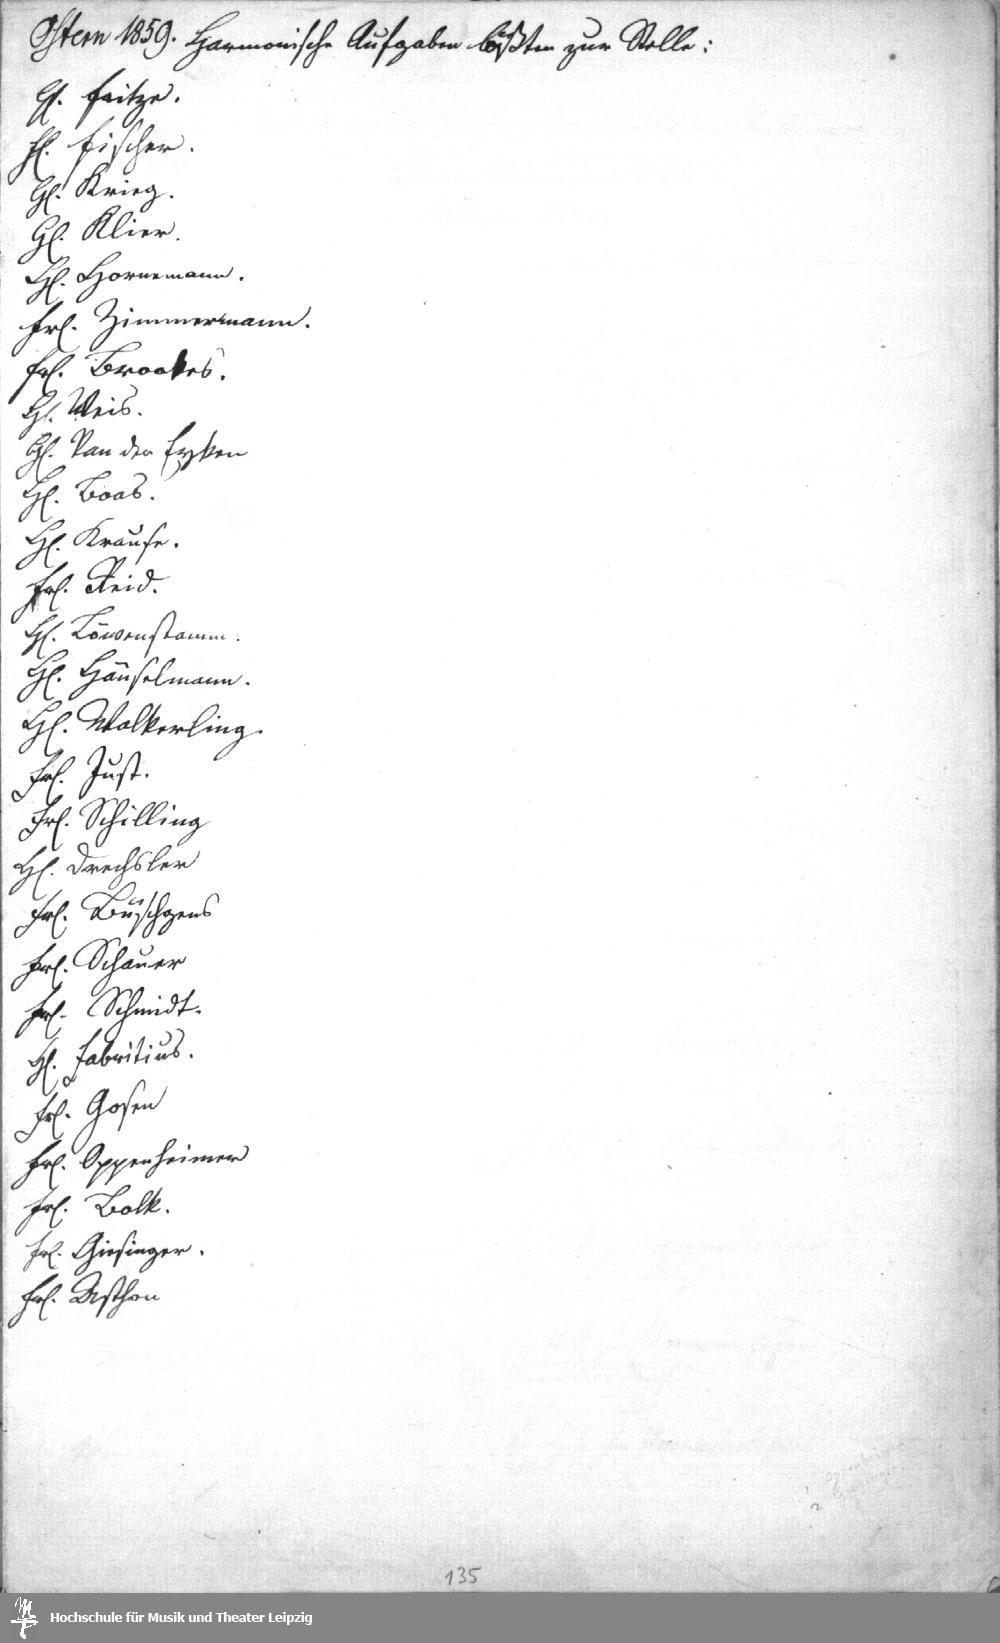 Ostern 1859. Harmonische Aufgaben lößten zur Stelle:
H. Fritze.
H. Fischer.
H. Krieg.
H. Klier.
H. Hornemann.
Frl. Zimmermann.
Frl. Brookes.
H. Weis.
H. Van der Eyken
H. Boas.
H. Krause.
Frl. Reid.
H. Löwenstamm.
H. Hänselmann.
H. Walkerling.
Frl. Just.
Frl. Schilling
H. Drechsler
Frl. Büschgens
Frl. Schauer
Frl. Schmidt.
H. Fabritius.
Frl. Gosen
Frl. Oppenheimer
Frl. Bolk.
Frl. Giesinger.
Frl. Asthon
135
Hochschule für Musik und Theater Leipzig